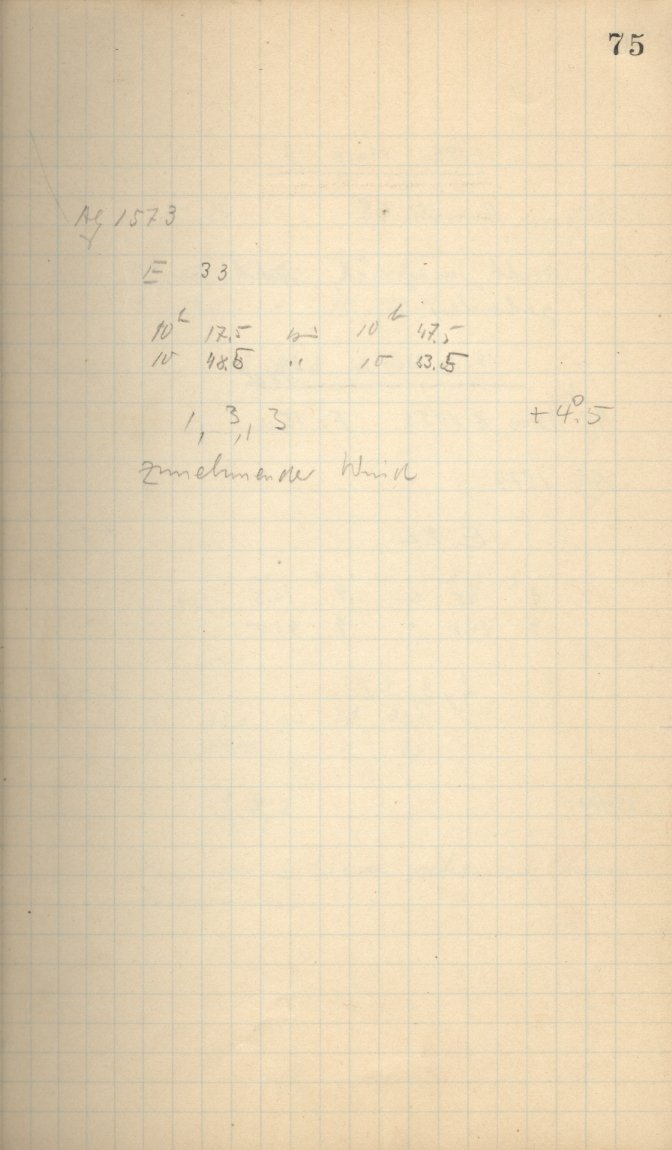 75
Ag 1573
E 33
10h 17,5 bis 10h 47,5
10 48.5 " 10 53.5
1, 3, 3 +4°.5
Zunehmender Wind